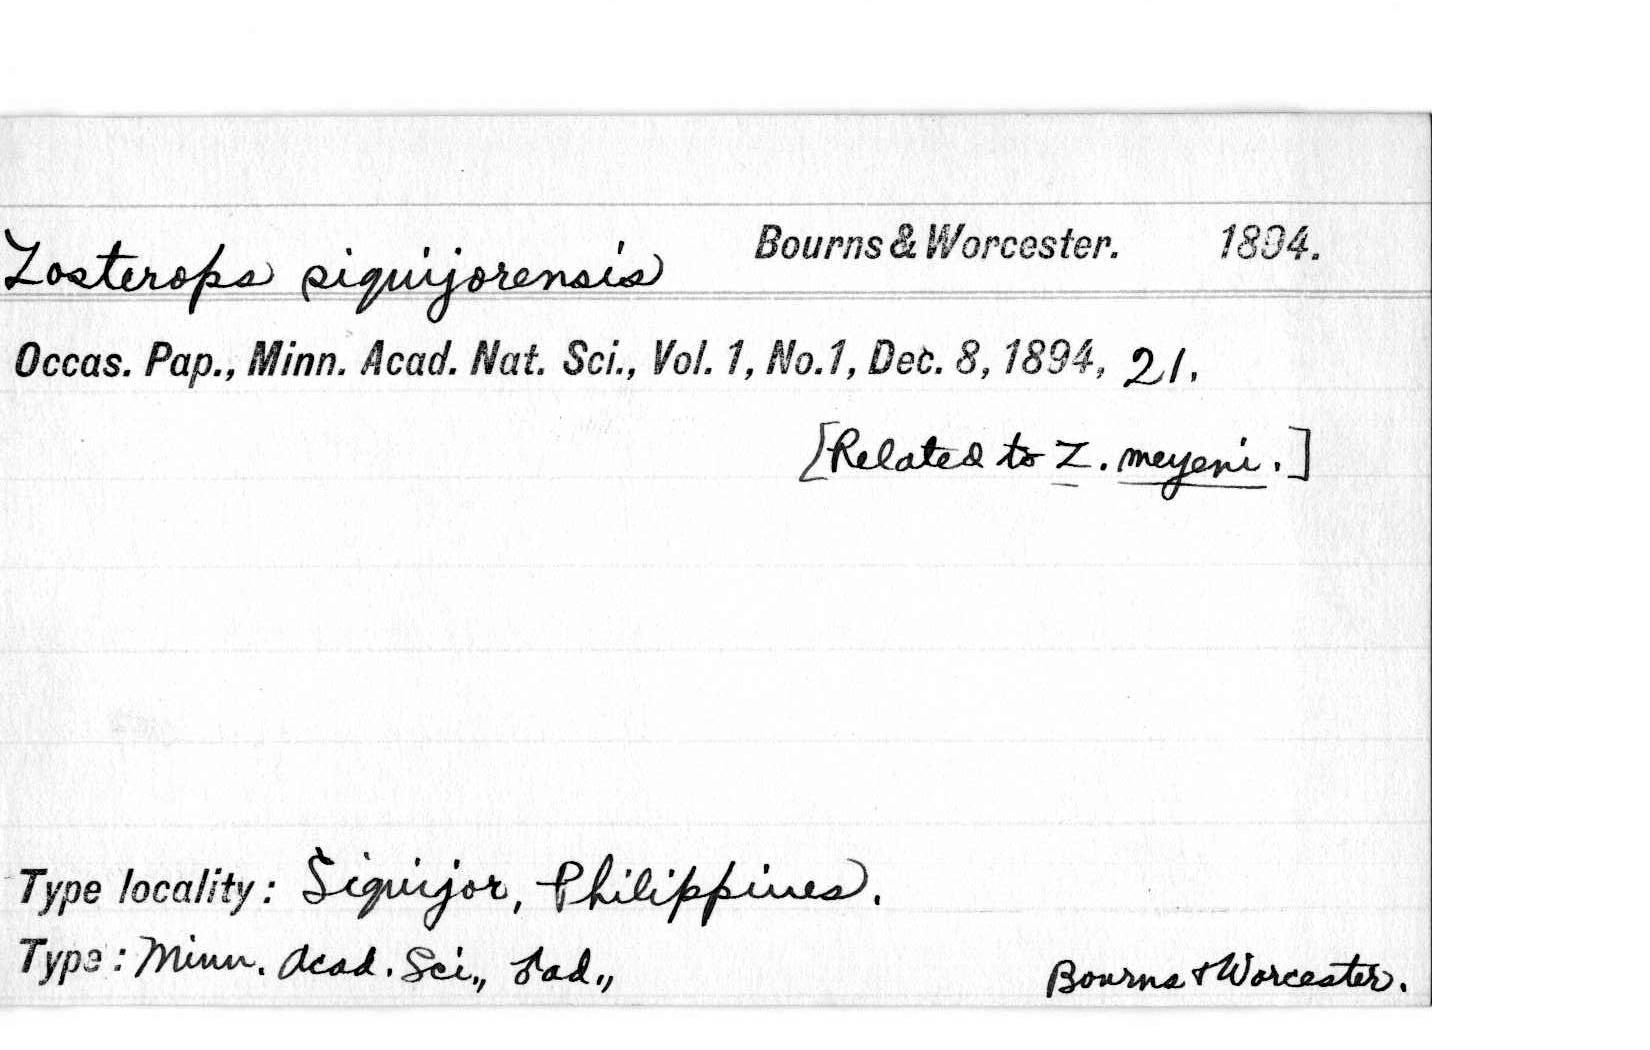 Zosterops siquijorensis Bourns & Worcester. 1894.
Occas. Pap., Minn. Acad. Nat. Sci., Vol. 1, No. 1, Dec. 8, 1894, 21.
[Related to Z. meyeni.]
Type locality: Siquijor, Philippines.
Type: Minn. Acad. Sci., ♂ad., Bourns & Worcester.